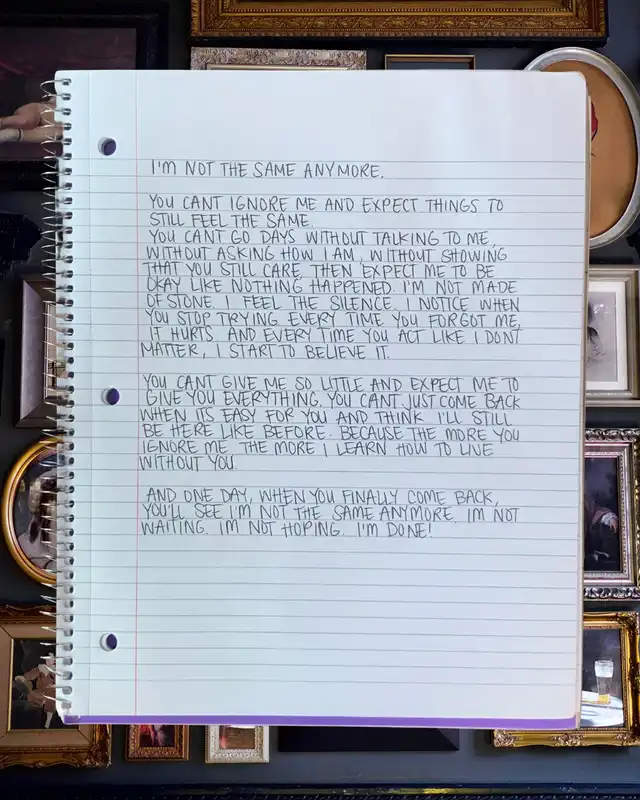 I'M NOT THE SAME ANYMORE.
YOU CANT IGNORE ME AND EXPECT THINGS TO
STILL FEEL THE SAME.
YOU CANT GO DAYS WITHOUT TALKING TO ME,
WITHOUT ASKING HOW I AM, WITHOUT SHOWING
THAT YOU STILL CARE, THEN EXPECT ME TO BE
OKAY LIKE NOTHING HAPPENED. I'M NOT MADE
OF STONE. I FEEL THE SILENCE. I NOTICE WHEN
YOU STOP TRYING. EVERY TIME YOU FORGOT ME,
IT HURTS. AND EVERY TIME YOU ACT LIKE I DONT
MATTER, I START TO BELIEVE IT.
YOU CANT GIVE ME SO LITTLE AND EXPECT ME TO
GIVE YOU EVERYTHING. YOU CANT JUST COME BACK
WHEN ITS EASY FOR YOU AND THINK I'LL STILL
BE HERE LIKE BEFORE. BECAUSE THE MORE YOU
IGNORE ME, THE MORE I LEARN HOW TO LIVE
WITHOUT YOU.
AND ONE DAY, WHEN YOU FINALLY COME BACK,
YOU'LL SEE I'M NOT THE SAME ANYMORE. IM NOT
WAITING. IM NOT HOPING. I'M DONE!